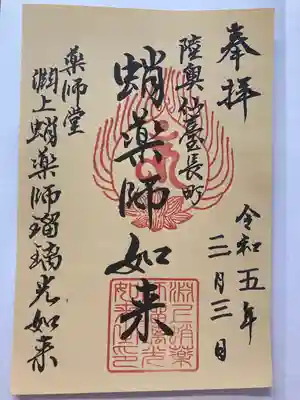 奉拝
令和五年
二月三日
陸奥仙臺長町
蛸薬師如来
薬師堂
渕上蛸薬師瑠璃光如来